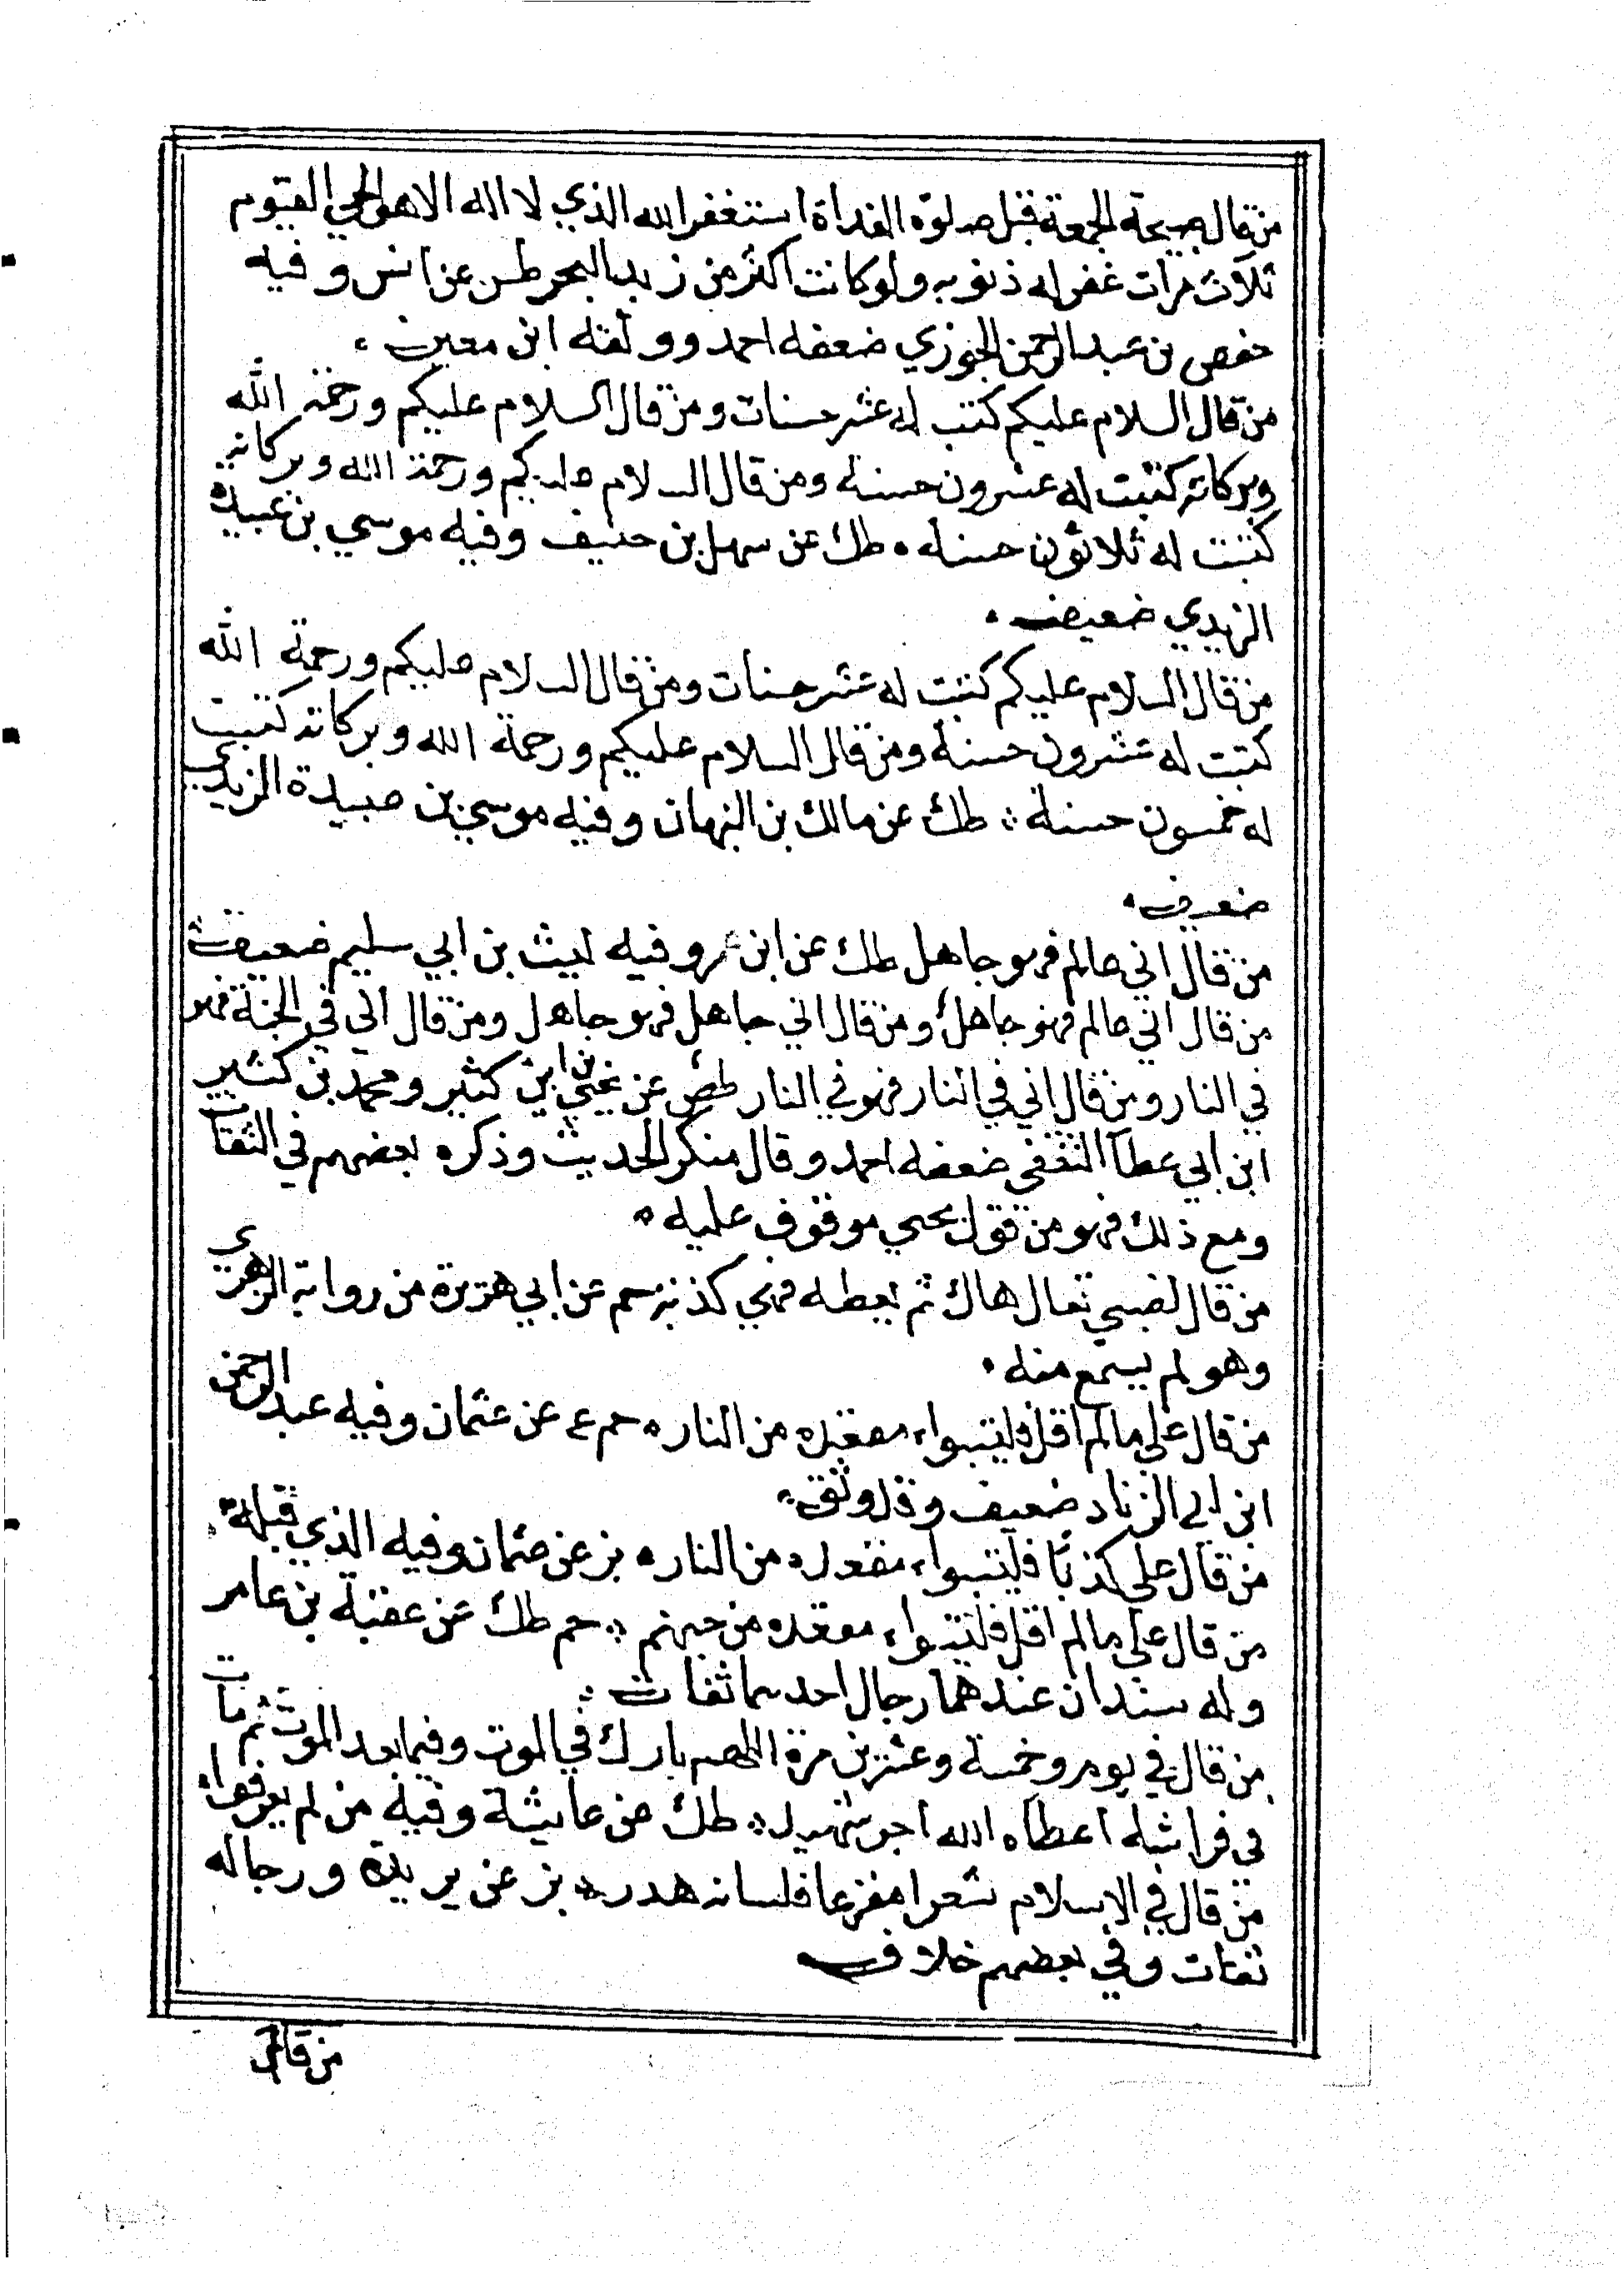 من قال صبيحة الجمعة قبل صلوة الغداة استغفر الله الذي لا اله الا هو الحي القيوم
ثلاث مرات غفر له ذنوبه ولو كانت اكثر من زبد البحر طس عن انس وفيه
حفص بن عبد الرحمن الجوزي ضعفه احمد ووثقه ابن معين
من قال السلام عليكم كتب له عشر حسنات ومن قال السلام عليكم ورحمة الله
وبركاته كتبت له عشرون حسنة ومن قال السلام عليكم ورحمة الله وبركاته
كتبت له ثلاثون حسنة طك عن سهل بن حنيف وفيه موسي بن عبيدة
الزبيدي ضعيف
من قال السلام عليكم كتبت له عشر حسنات ومن قال السلام عليكم ورحمة الله
كتبت له عشرون حسنة ومن قال السلام عليكم ورحمة الله وبركاته كتبت
له خمسون حسنة طك عن مالك بن التهان وفيه موسي بن عبيدة الزيدي
ضعيف
من قال اني عالم فهو جاهل طك عن ابن عمر وفيه ليث بن ابي سليم ضعيف
من قال اني عالم فهو جاهل ومن قال اني جاهل فهو جاهل ومن قال اني في الجنة فهو
في النار ومن قال اني في النار فهو في النار طص عن يحيي بن ابي كثير ومحمد بن كثير
ابن ابي عطآ الثقفي ضعفه احمد وقال منكر الحديث وذكره بعضهم في الثقات
ومع ذلك فهو من قول يحيي موقوف عليه
من قال لصبي تعال هاك ثم يعطه فهي كذبة حم عن ابي هريرة من رواية الزهري
وهو لم يسمع منه
من قال علي ما لم اقل فليتبواء مقعده من النار حم ع عن عثمان وفيه عبد الرحمن
ابن ابي الزناد ضعيف وقد وثق
من قال علي كذبًا فليتبواء مقعده من النار بز عن عثمان وفيه الذي قبله
من قال علي ما لم اقل فليتبواء مقعده من جهنم حم طك عن عقبة بن عامر
وله سندان عندهما رجال احدهما ثقات
من قال في يوم وخمسة وعشرين مرة اللهم بارك في الموت وفيما بعد الموت ثم مات
في فراشه اعطاه الله اجر شهيد طك عن عايشة وفيه من لم يعرفوا
من قال في الاسلام شعرا مقزعا فلسانه هدر بز عن بريدة ورجاله
ثقات وفي بعضهم خلاف
من قال